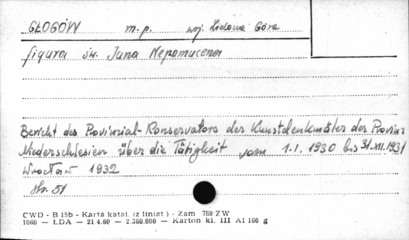 GŁOGÓW m. p. woj. Zielona Góra
figura św. Jana Nepomucena
Bericht des Provinzial-Konservators der Kunstdenkmäler der Provinz
Niederschlesien über die Tätigkeit vom 1.1.1930 bis 31.XII.1931
Wrocław 1932
Str. 51
CWD - B 15b - Karta katal. (z liniat.) - Zam 768 ZW
1660 — ŁDA — 21.4.60 — 2.360.000 — Karton kl. III A1 160 g